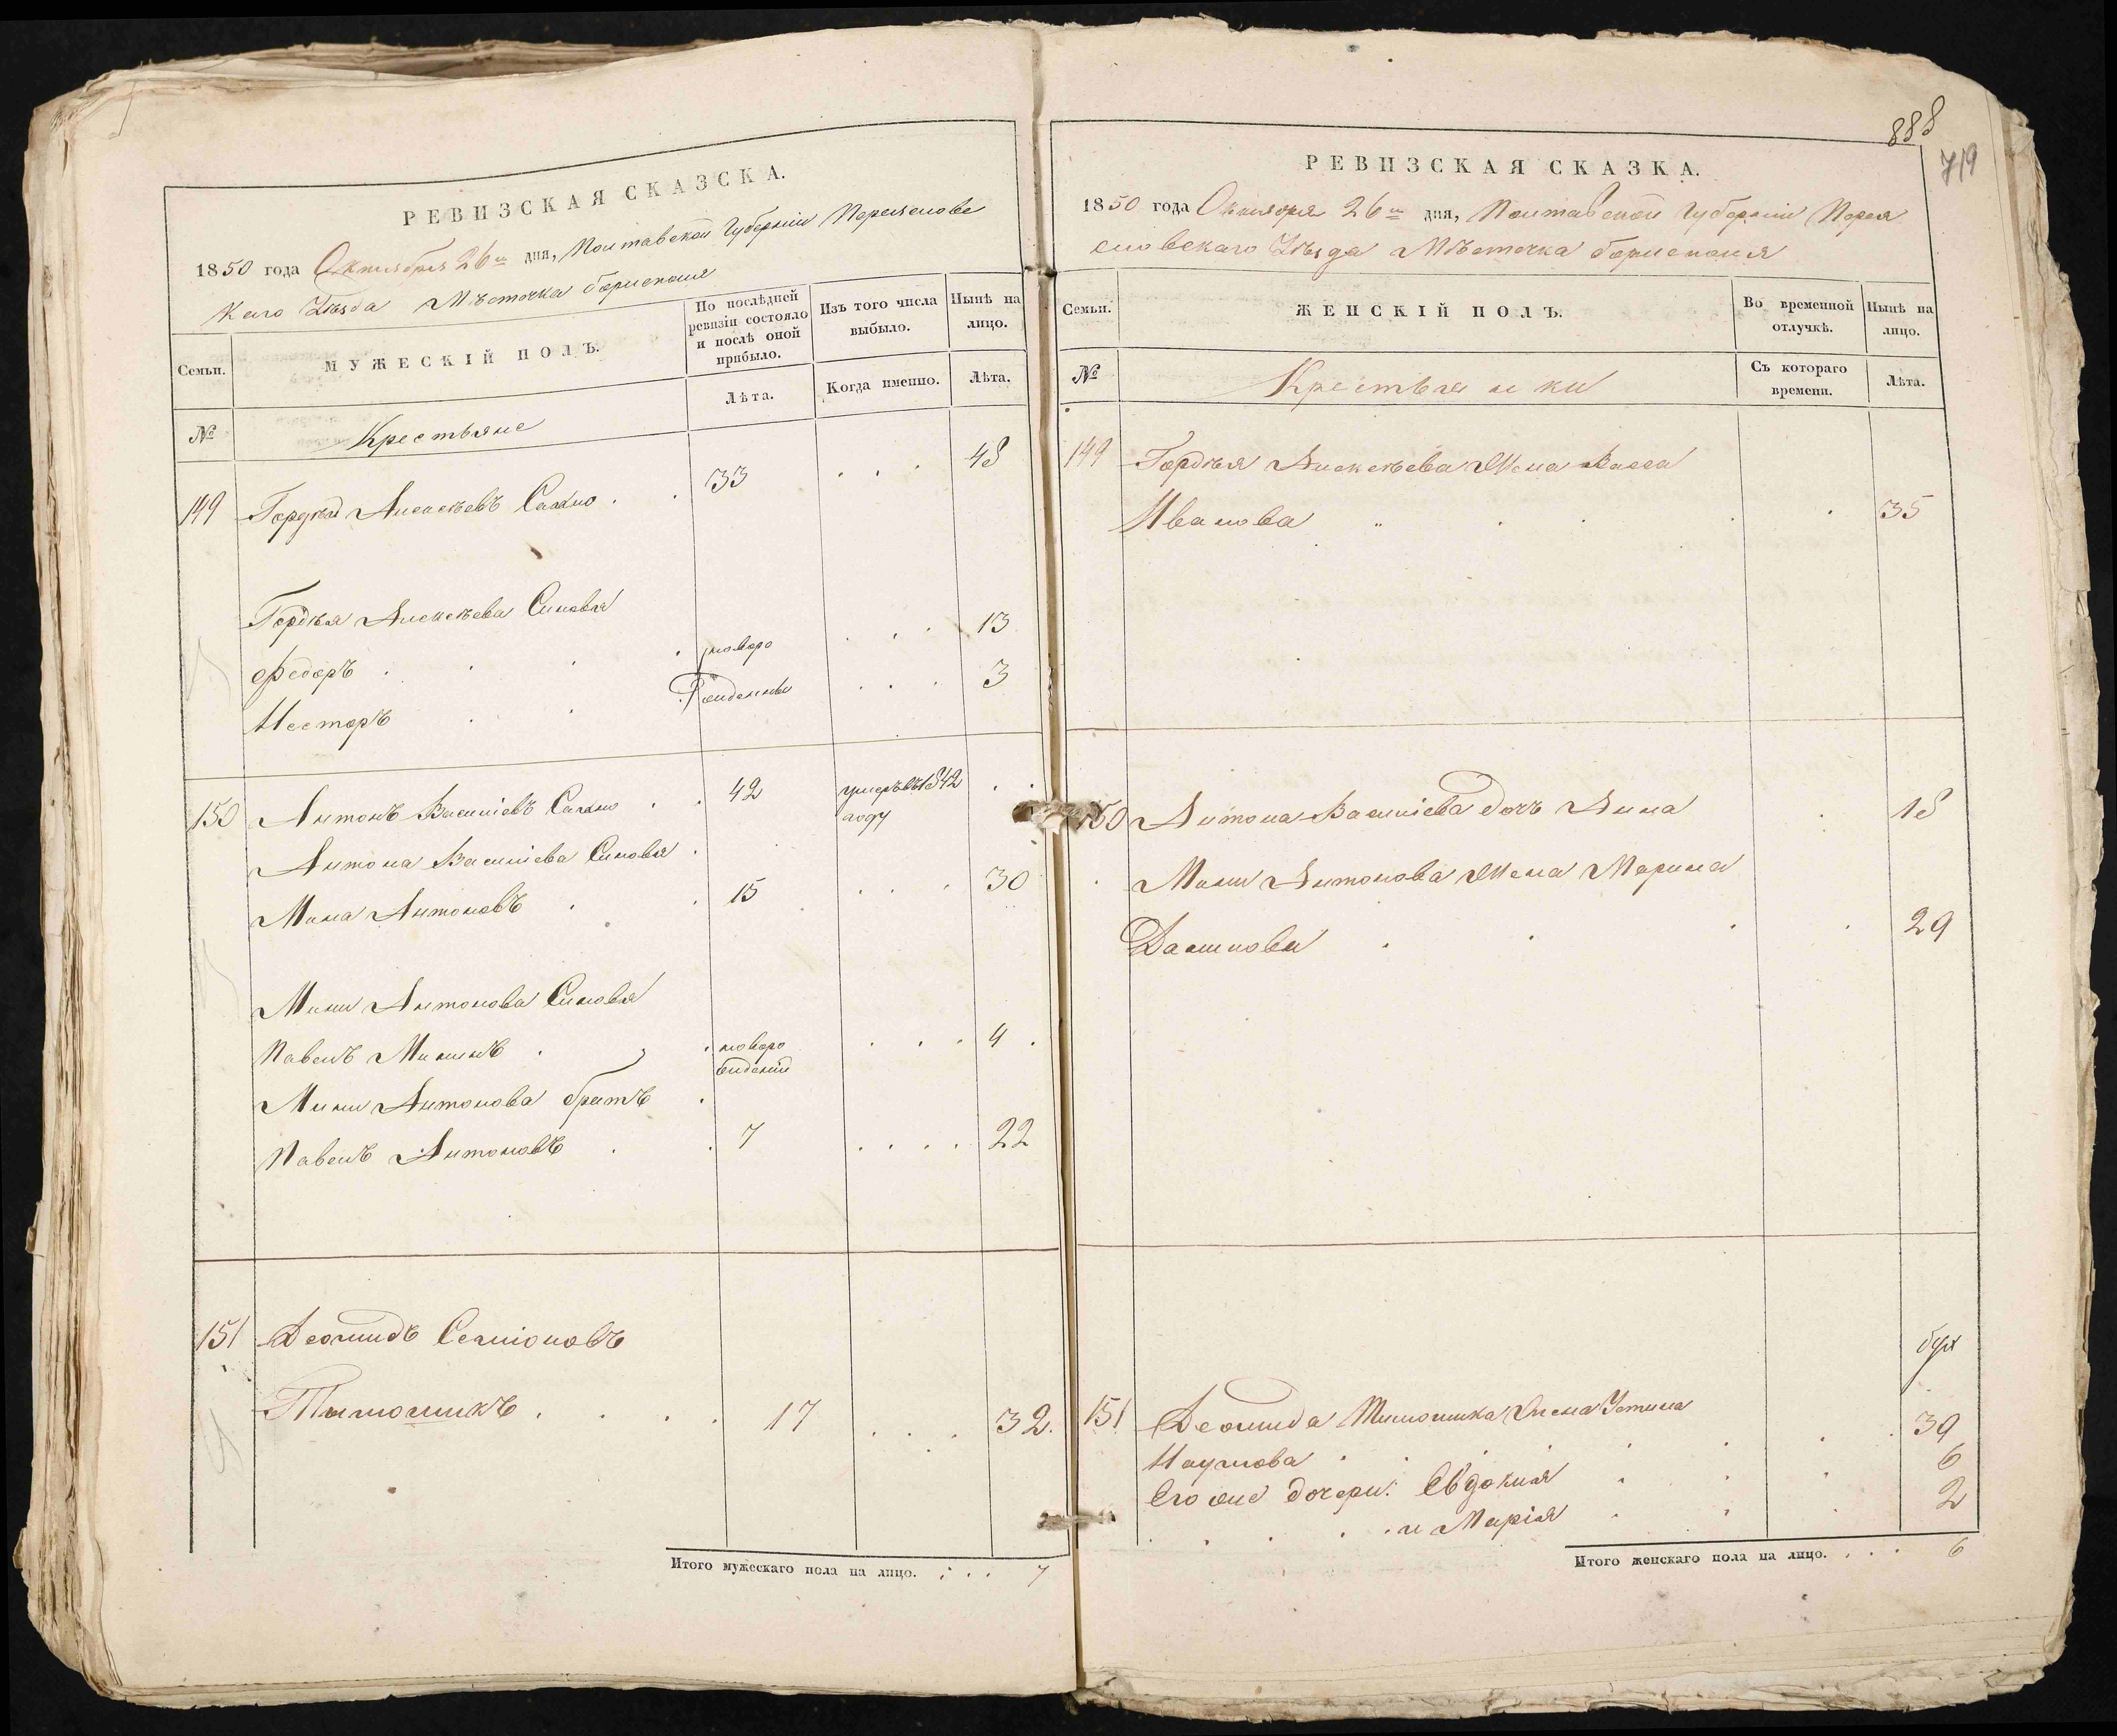 РЕВИЗСКАЯ СКАЗСКА.
1850 года Октября 26го дня, Полтавской Губерніи Переяслове
каго Уѣзда Мѣстечка Борисполя
Семьи.
МУЖЕСКІЙ ПОЛЪ.
По послѣдней ревизіи состояло и послѣ оной прибыло.
Изъ того числа выбыло.
Нынѣ на лицо.
№
Крестьяне
Лѣта.
Когда именно.
Лѣта.
149 Гордѣй Алексѣевъ Сахно . . 33 . . . 48
Гордѣя Алексѣева Сыновья
Федоръ . . . . новоро . . . 13
Несторъ . . . жденны . . . 3
150 Антонъ Васильевъ Сахно . . 42 умеръ въ 1842 . .
году
Антона Васильева Сыновья .
Мина Антоновъ . . 15 . . . 30
Мины Антонова Сыновья
Павелъ Мининъ . . . новоро . . . 4 .
жденый
Мины Антонова братъ .
Павелъ Антоновъ . . 7 . . . . 22
151 Леонидъ Семіоновъ
Тимошикъ . . . . 17 . . . 32.
Итого мужескаго пола на лицо. . . . 7
888
719
РЕВИЗСКАЯ СКАЗКА.
1850 года Октября 26го дня, Полтавской Губерніи Перея
словскаго Уѣзда Мѣстечка Борисполя
Семьи.
ЖЕНСКІЙ ПОЛЪ.
Во временной отлучкѣ.
Нынѣ на лицо.
№
Крестьянки
Съ котораго времени.
Лѣта.
149 Гордѣя Алексѣева Жена Васса
Иванова " . . . . 35
150 Антона Васильева дочь Анна . 18
Мины Антонова Жена Марина
. . . . 29
151 Леонида Тимошика Жена Устина
Наумова . . . . . . 39
Его же дочери: Евдокия . . . 6
. . . . и Марія . . . 2
Итого женскаго пола на лицо. . . . 6